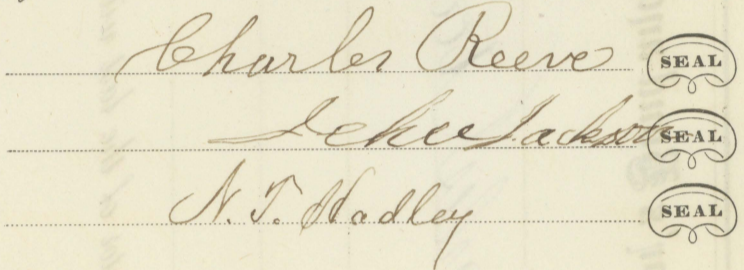 Charles Reeve SEAL
Jehu Jackson SEAL
N. T. Hadley SEAL